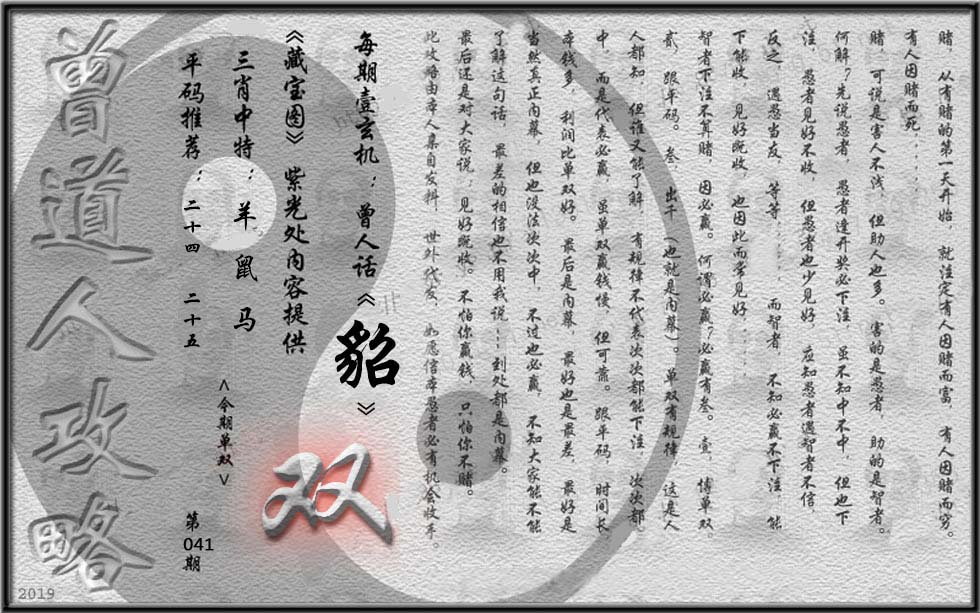 赌，从有赌的第一天开始，就注定有人因赌而富，有人因赌而穷。
有人因赌而死．．．．．．
赌，可说是害人不浅，但助人也多。害的是愚者，助的是智者。
何解？先说愚者，愚者逢开奖必下注，虽不知中不中，但也下
注，愚者见好不收，但愚者也少见好，应知愚者遇智者不信，
反之，遇愚当友，等等．．．．．．而智者，不知必赢不下注，能
下能收，见好既收，也因此而常见好．．．．．．
智者下注不算赌，因必赢。何谓必赢？必赢有叁。壹，博单双，
贰，跟平码。叁，出千（也就是内幕）。单双有规律，这是人
人都知，但谁又能了解，有规律不代表次次都能下注，次次都
中，而是代表必赢，虽单双赢钱慢，但可靠。跟平码，时间长，
本钱多，利润比单双好。最后是内幕，最好也是最差，最好是
当然真正内幕，但也没法次次中，不过也必赢，不知大家能不能
了解这句话，最差的相信也不用我说．．．到处都是内幕。
最后还是对大家说：见好既收。不怕你赢钱，只怕你不赌。
此攻略由本人集自发料，世外代友，如愿信本愚者必有机会收手。
每期壹玄机：曾人话《貂》
《藏宝图》紫光处内容提供
三肖中特：羊 鼠 马
<今期单双>
双
平码推荐：二十四 二十五
第041期
曾道人攻略
2019